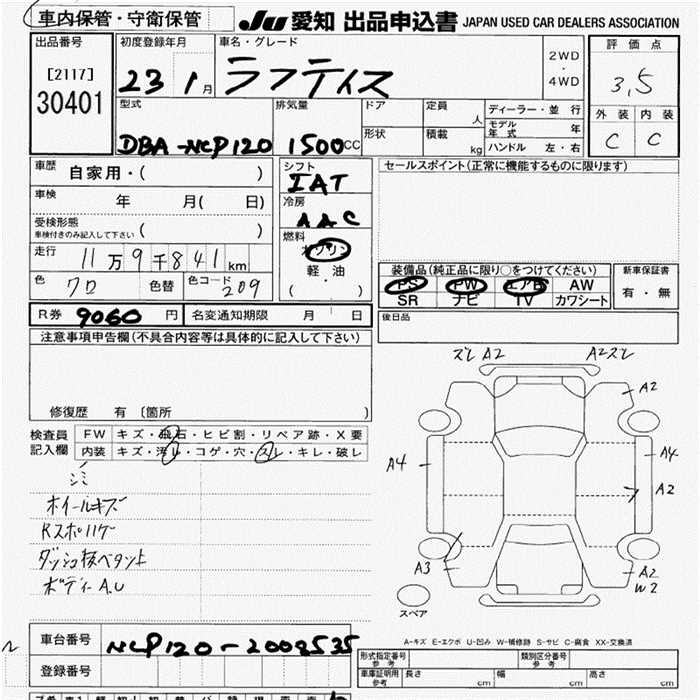 車内保管・守衛保管 JU 愛知 出品申込書 JAPAN USED CAR DEALERS ASSOCIATION
出品番号 初度登録年月 車名・グレード 2WD・4WD 評価点
[2117] 30401 23 1月 ラフティス 3,5
外装 内装
C C
型式 排気量 ドア 定員 人 ディーラー・並行
モデル年式 年
DBA-NCP120 1500CC 形状 積載 kg ハンドル 左・右
車歴 自家用・( ) シフト セールスポイント(正常に機能するものに限ります)
IAT
車検 年 月( 日) 冷房
AAC
受検形態 ( )
車検付きのみ記入して下さい
燃料
ガソリン
軽油
( ・ )
走行 11万9千841km
色 クロ 色替 色コード 209
装備品(純正品に限り○をつけてください) 新車保証書
PS PW エアB AW 有・無
SR ナビ TV カワシート
R券 9060円 名変通知期限 月 日 後日品
注意事項申告欄(不具合内容等は具体的に記入して下さい)
修復歴 有 〔箇所 〕
検査員記入欄 FW キズ・飛石・ヒビ割・リペア跡・X要
内装 キズ・汚レ・コゲ・穴・スレ・キレ・破レ
シミ
ホイールキズ
Rスポハゲ
ボディーA.U
ズレ A2 A2ズレ
A2
A4 A4
A2
A3 A2
W2
スペア
A-キズ E-エクボ U-凹み W-補修跡 S-サビ C-腐食 XX-交換済
車台番号 NCP120-2008535
登録番号
型式指定番号 参考 類別区分番号 参考
車庫証明用 参考 長さ cm 幅 cm 高さ cm